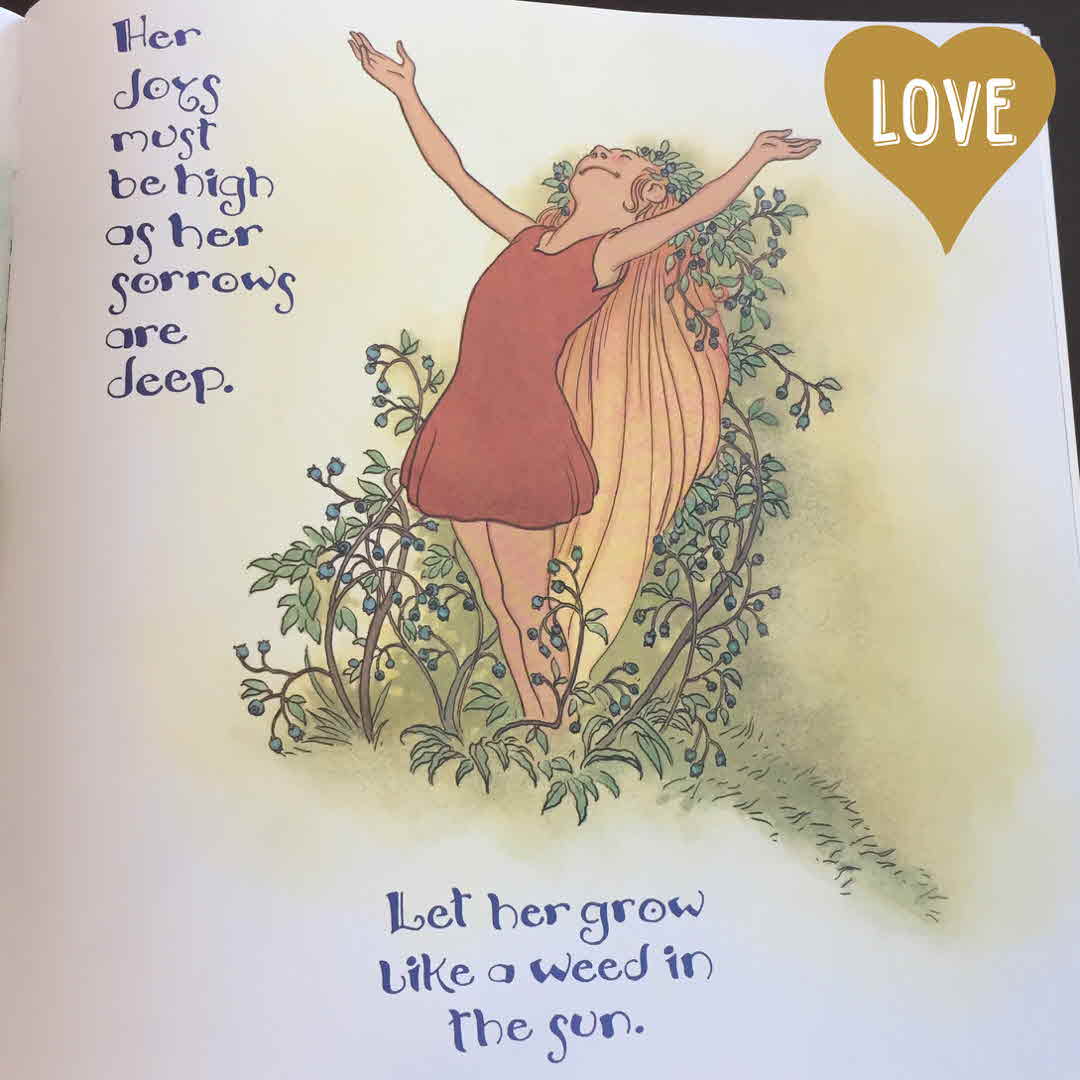 Her
Joys
must
be high
as her
sorrows
are
deep.
LOVE
Let her grow
Like a weed in
the sun.